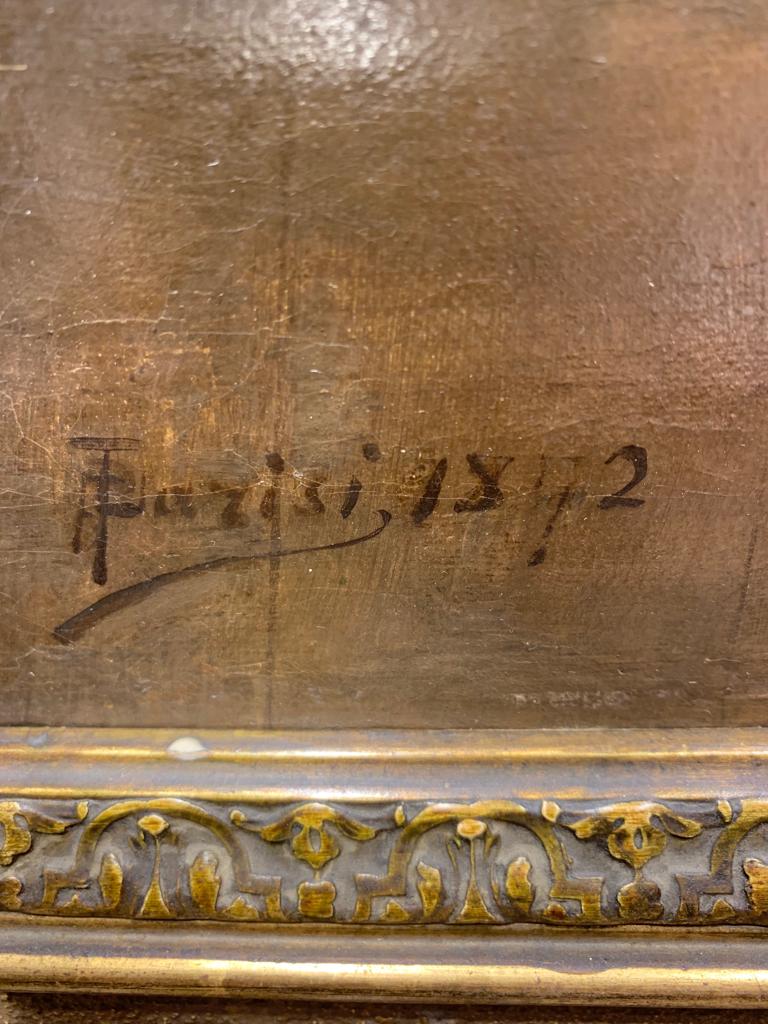 Parisi, 1872